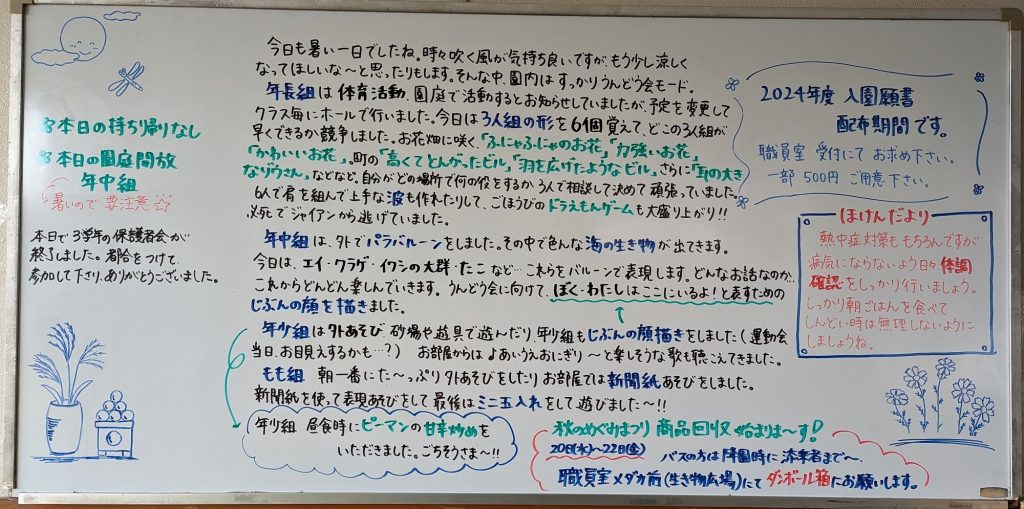 今日も暑い一日でしたね。時々吹く風が気持ち良いですが、もう少し涼しく
なってほしいな〜と思ったりもします。そんな中、園内はすっかりうんどう会モード。
年長組は体育活動、園庭で活動するとお知らせしていましたが、予定を変更して
クラス毎にホールで行いました。今日は3人組の形を6個覚えて、どこの3人組が
早くできるか競争しました。お花畑に咲く、「ふにゃふにゃのお花」、「力強いお花」
「かわいいお花」。町の「高くてとんがったビル」、「羽を広げたようなビル」、さらに「耳の大き
なゾウさん」などなど。自分がどの場所で何の役をするか3人で相談して決めて頑張っていました。
6人で肩を組んで上手な波も作れたりして、ごほうびのドラえもんゲームも大盛り上がり!!
必死でジャイアンから逃げていました。
年中組は、外でパラバルーンをしました。その中で色んな海の生き物が出てきます。
今日は、エイ・クラゲ・イワシの大群・たこなど…これらをバルーンで表現します。どんなお話なのか、
これからどんどん楽しんでいきます。うんどう会に向けて、ぼく・わたしはここにいるよ!と表すための
じぶんの顔を描きました。
年少組は外あそび 砂場や遊具で遊んだり、年少組もじぶんの顔描きをしました(運動会
当日、お目見えするかも…?) お部屋からは よあいうえおにぎり〜と楽しそうな歌も聴こえてきました。
もも組 朝一番にた〜っぷり外あそびをしたり お部屋では新聞紙あそびをしました。
新聞紙を使って表現あそびをして 最後はミニ玉入れをして遊びました〜!!
年少組 昼食時にピーマンの甘辛炒めを
いただきました。ごちそうさま〜!!
本日の持ち帰りなし
本日の園庭開放
年中組
暑いので要注意☆
本日で3学年の保護者会が
終了しました。都合をつけて
参加して下さり、ありがとうございました。
2024年度 入園願書
配布期間です。
職員室 受付にて お求め下さい。
一部 500円 ご用意下さい。
ほけんだより
熱中症対策ももちろんですが
病気にならないよう日々、体調
確認をしっかり行いましょう。
しっかり朝ごはんを食べて
しんどい時は無理しないように
しましょうね。
秋のめぐみまつり 商品回収 始まりま〜す!
20日(水)〜22日(金) バスの方は降園時に添乗者まで〜、
職員室メダカ前(生き物広場)にて ダンボール箱にお願いします。